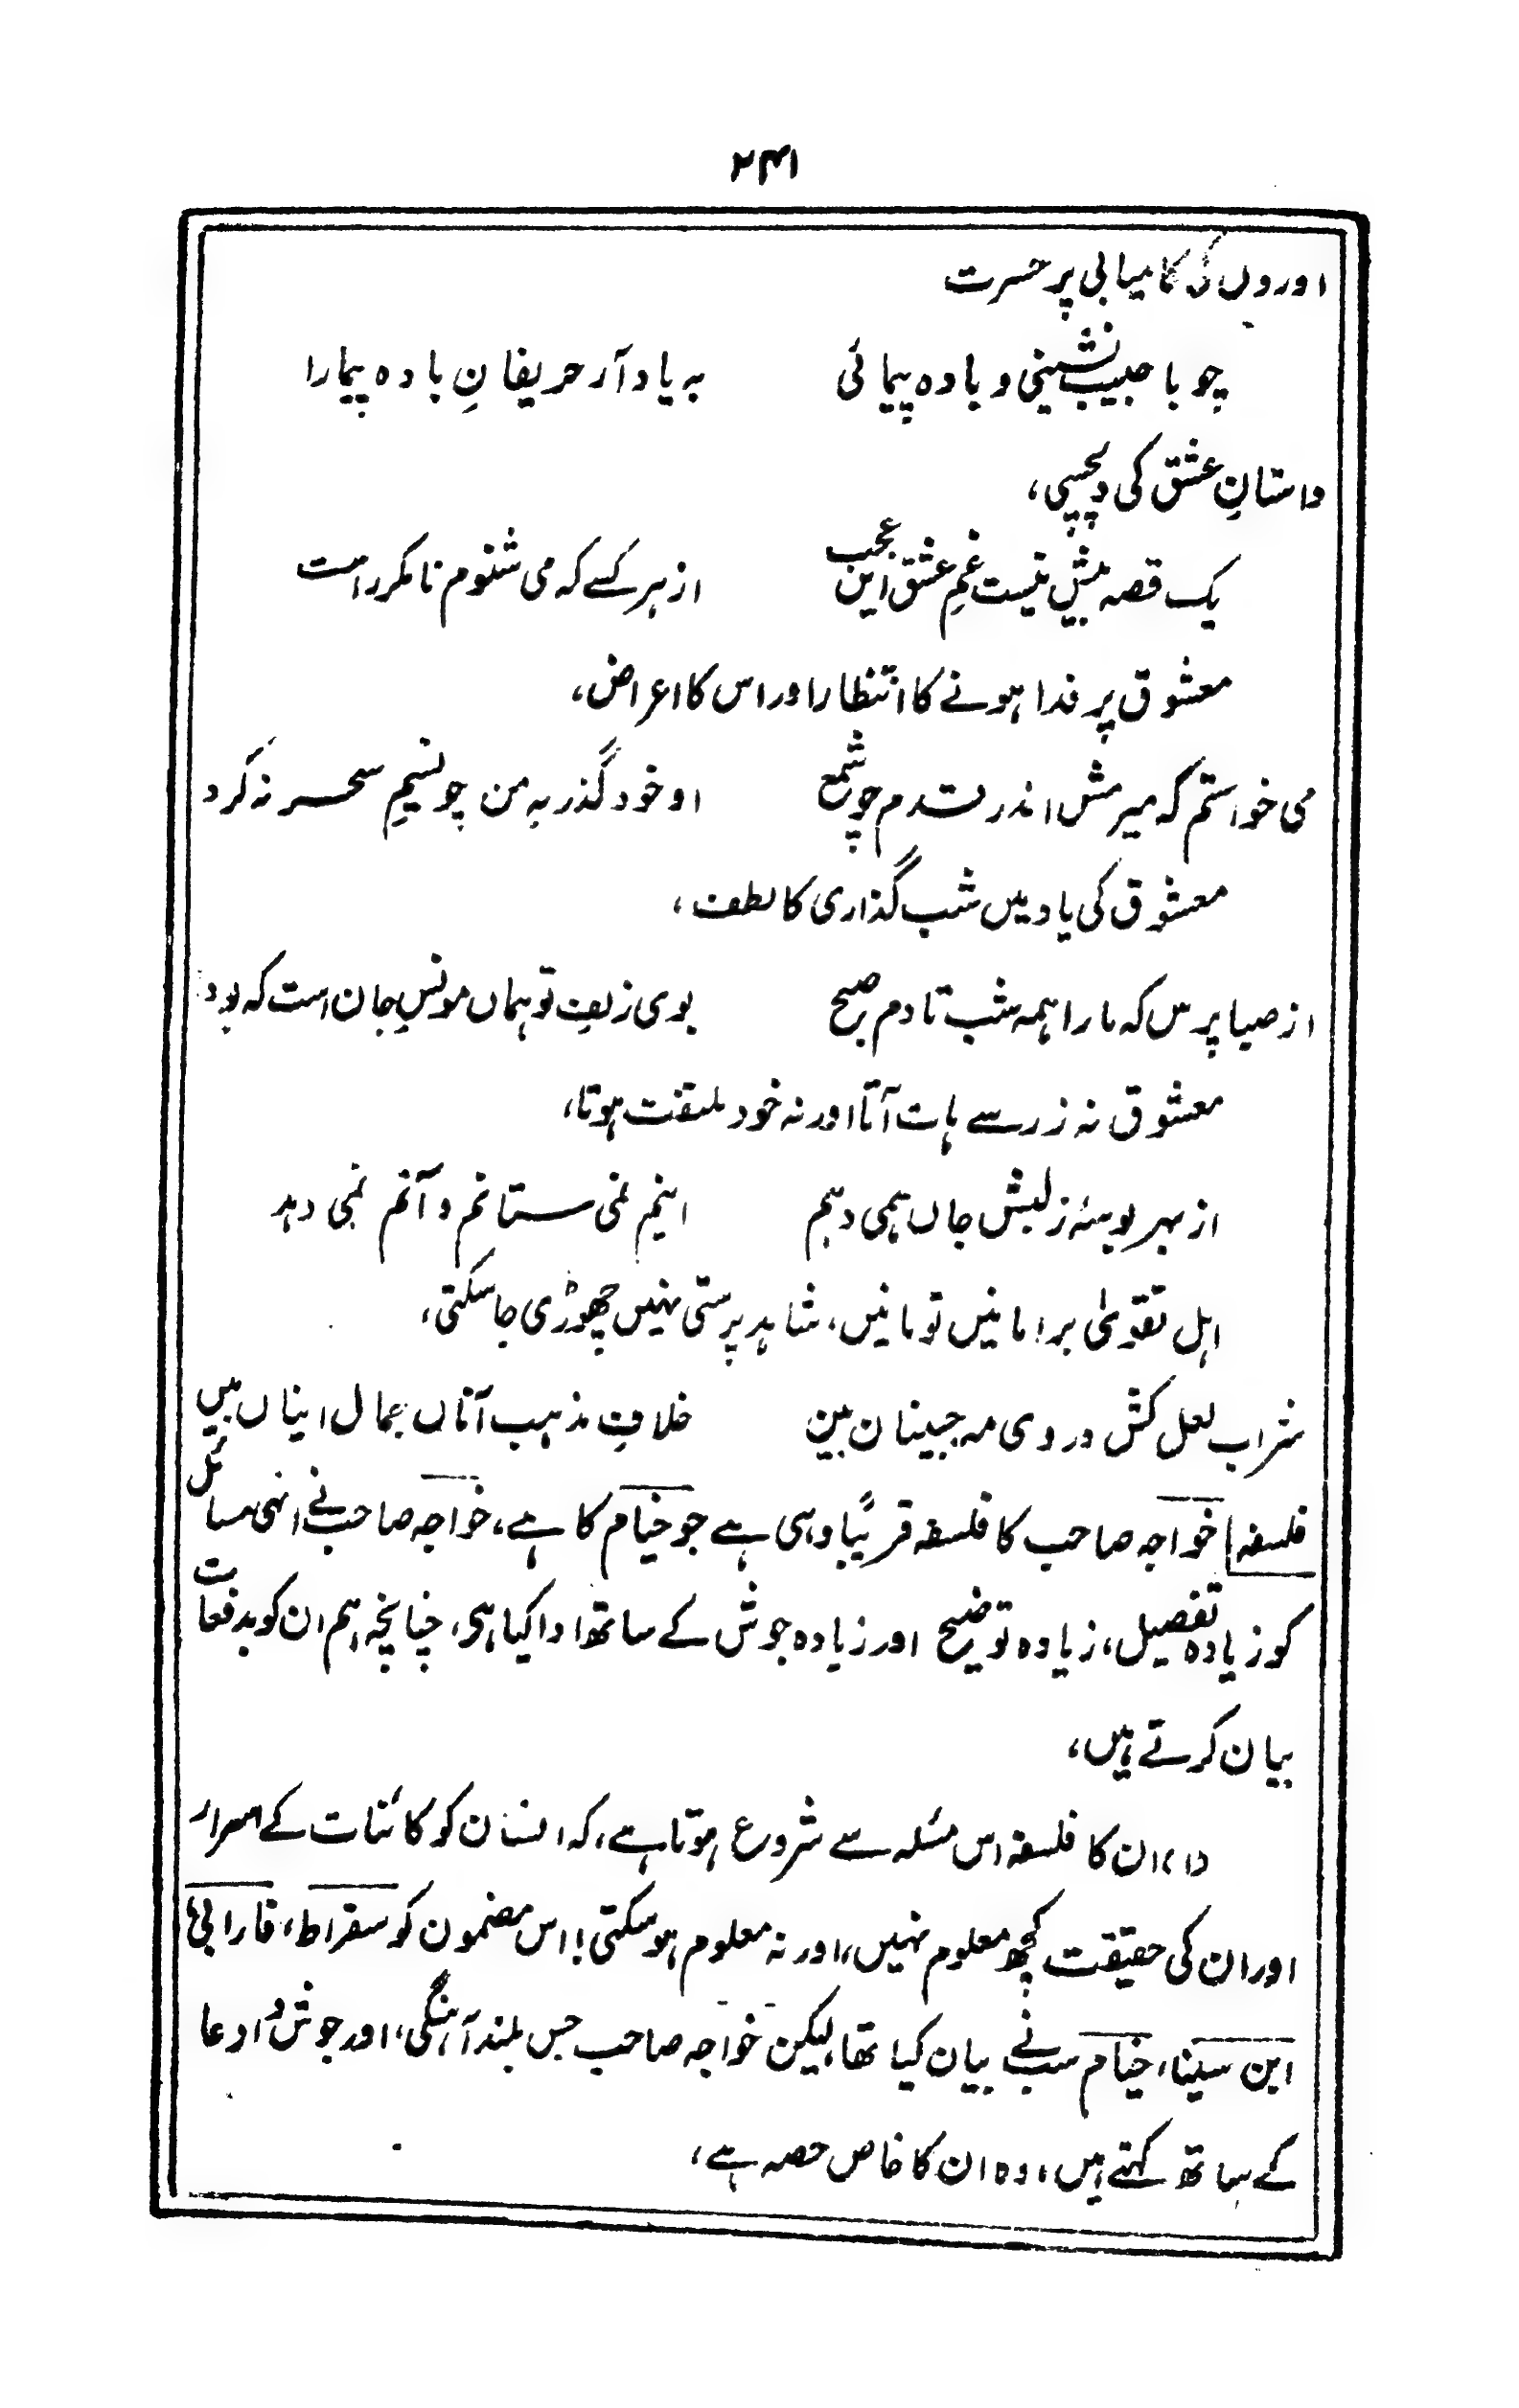 ۲۴۱
اوروں کی کامیابی پر حسرت
چو با حبیب نشینی و بادہ پیمائی بہ یاد آر حریفانِ بادہ پیما را
داستانِ عشق کی دلچسپی،
یک قصہ بیش نیست غمِ عشق این عجب از ہر کسے کہ می شنوم نامکرر است
معشوق پر فدا ہونے کا انتظار اور اس کا اعراض،
می خواستم کہ میرمش اندر قدم چو شمع او خود گذر بہ من چو نسیمِ سحر نہ کرد
معشوق کی یاد میں شب گذاری کا لطف،
از صبا پرس کہ ما را ہمہ شب تا دم صبح بوی زلفِ تو ہماں مونسِ جان است کہ بود
معشوق نہ زر سے ہات آتا اور نہ خود ملتفت ہوتا،
از بہر بوسۂ ز لبش جاں ہمی دہم اینم نمی ستانم و آنم نمی دہد
اہل تقویٰ برا مانیں تو مانیں، شاہد پرستی نہیں چھوڑی جا سکتی،
شراب لعل کش و روی مہ جبینان بین خلافِ مذہب آناں جمال ایناں بیں
فلسفہ خواجہ صاحب کا فلسفہ قریباً وہی ہے جو خیام کا ہے، خواجہ صاحب نے انہی مسائل
کو زیادہ تفصیل، زیادہ توضیح اور زیادہ جوش کے ساتھ ادا کیا ہی، چنانچہ ہم ان کو بدفعات
بیان کرتے ہیں،
(۱) ان کا فلسفہ اس مسئلہ سے شروع ہوتا ہے، کہ انسان کو کائنات کے اسرار
اور ان کی حقیقت کچھ معلوم نہیں، اور نہ معلوم ہو سکتی! اس مضمون کو سقراط، فارابی،
ابن سینا، خیام سب نے بیان کیا تھا، لیکن خواجہ صاحب جس بلند آہنگی، اور جوش و ادعا
کے ساتھ کہتے ہیں، وہ ان کا خاص حصہ ہے،